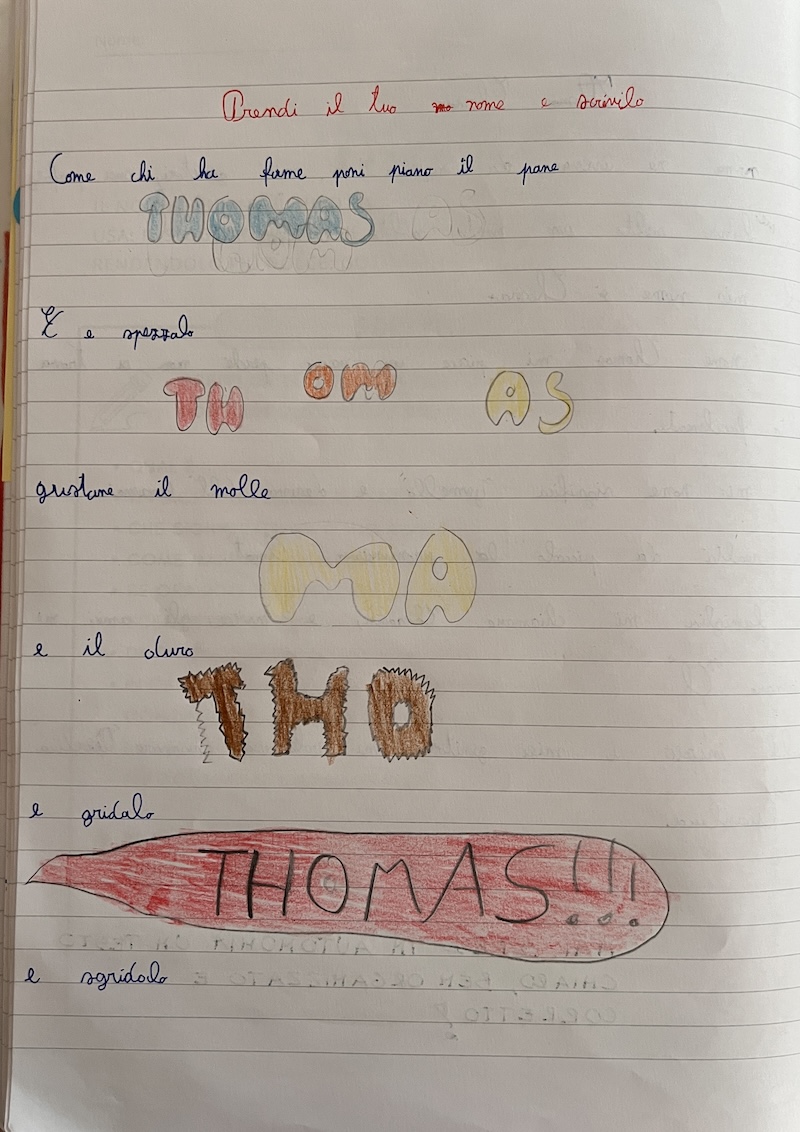 Prendi il tuo nome e scrivilo
Come chi ha fame poni piano il pane
THOMAS
E e spezzalo
TH OM AS
gustane il molle
MA
e il duro
THO
e gridalo
THOMAS!!!
e sgridalo